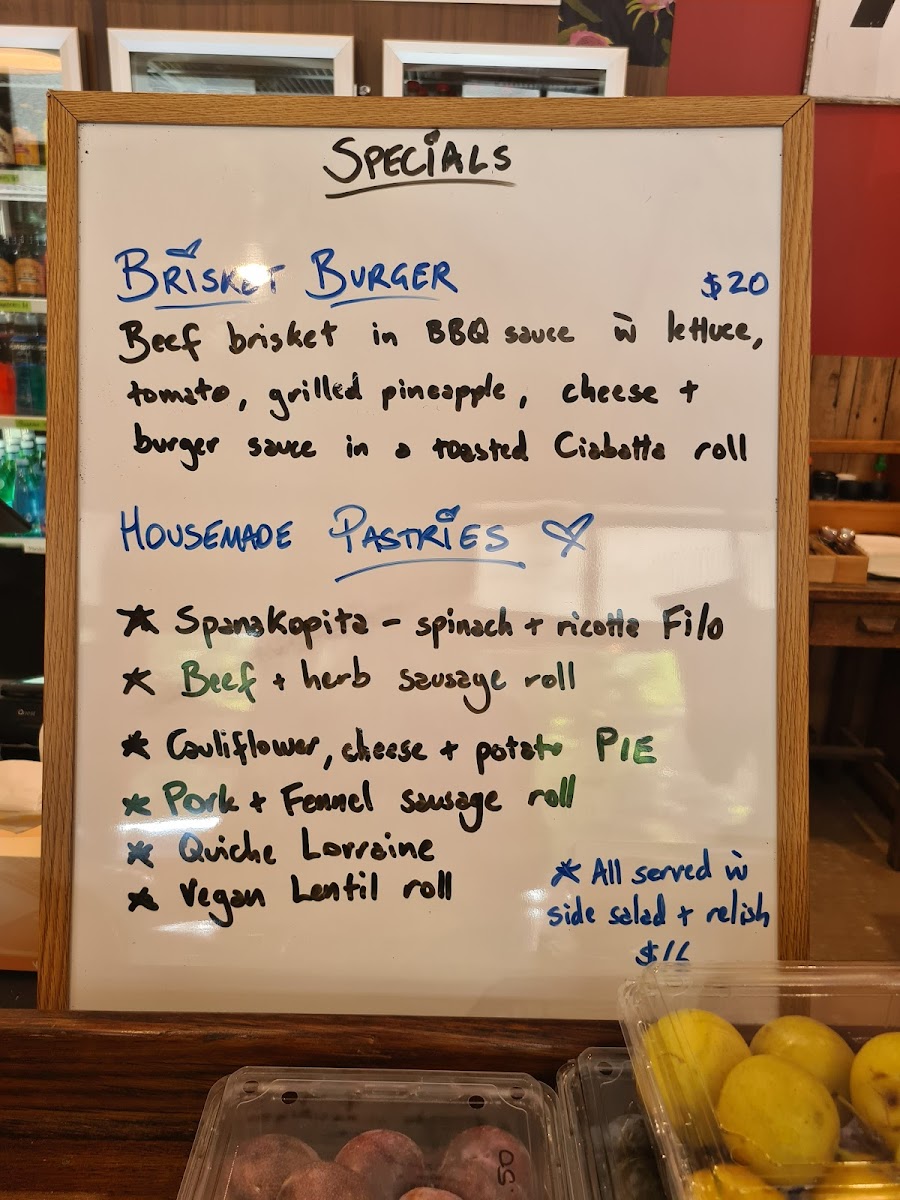 SPECIALS
BRISKET BURGER $20
Beef brisket in BBQ sauce ẁ lettuce,
tomato, grilled pineapple, cheese +
burger sauce in a toasted Ciabatta roll
HOUSEMADE PASTRIES
* Spanakopita - spinach + ricotta Filo
* Beef + herb sausage roll
* Cauliflower, cheese + potato PIE
* Pork + Fennel sausage roll
* Quiche Lorraine
* Vegan Lentil roll
* All served ẁ
side salad + relish
.50